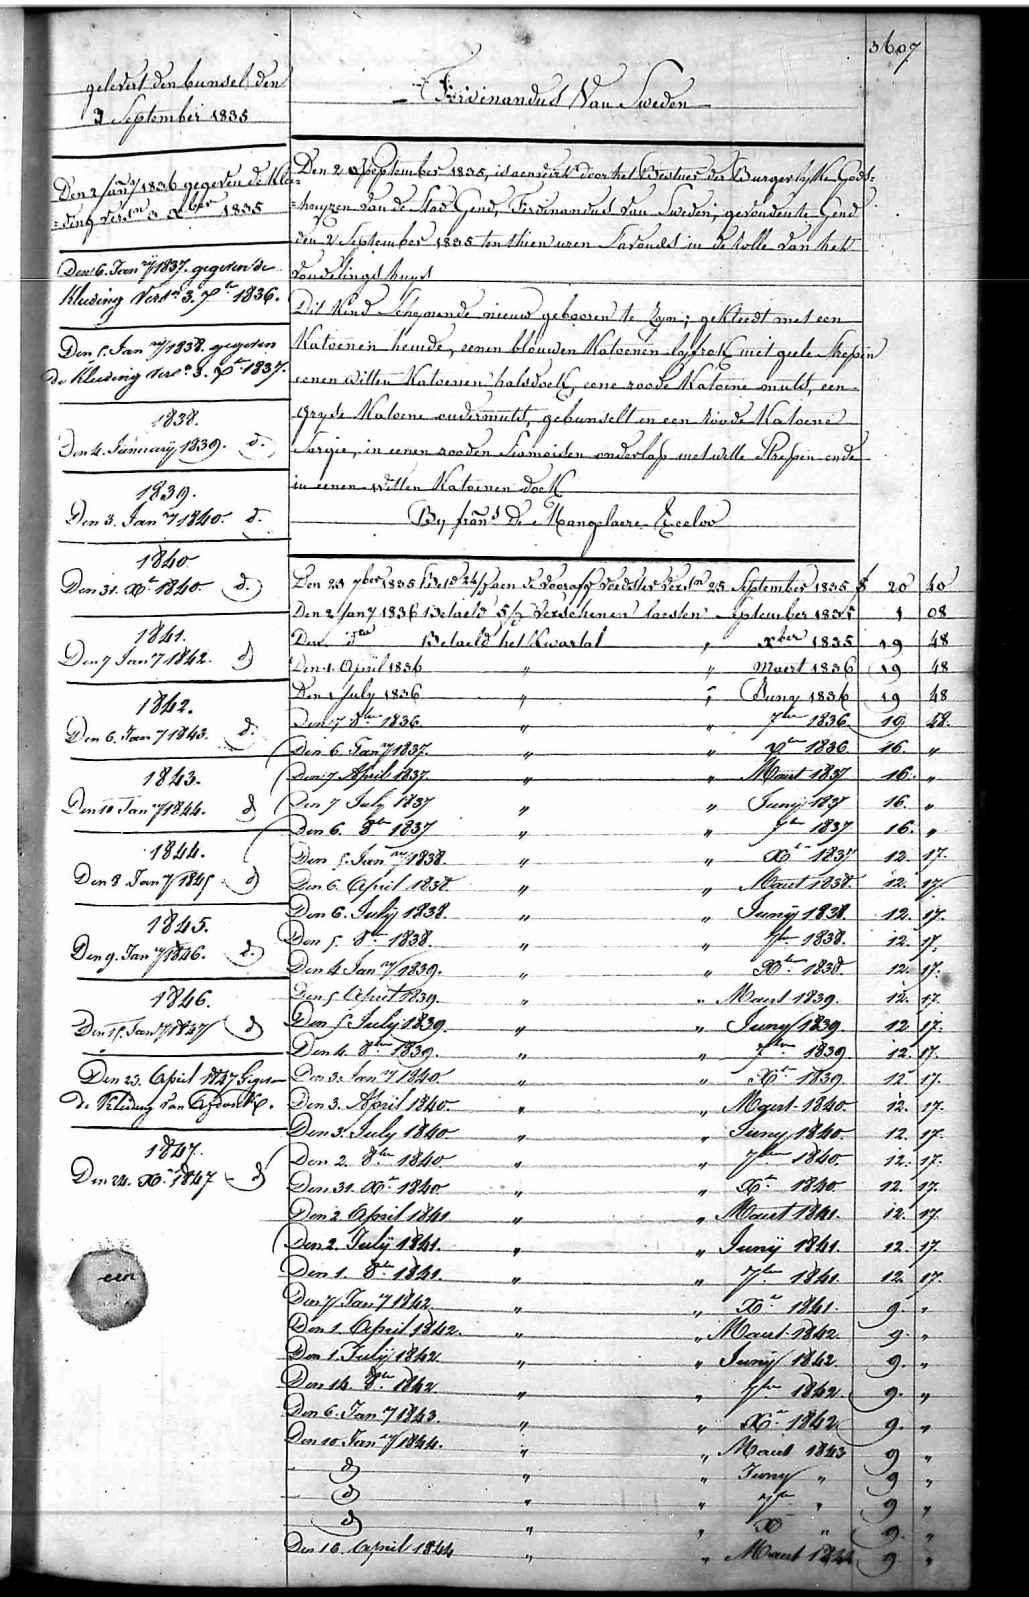 3607
gelevert den bunsel den
3 September 1835
Den 2 Jany 1836 gegeven de klee=
=ding versn 3 Xber 1835
Den 6. Jany 1837. gegeven de
Kleeding versn 3. Xr 1836.
Den 5. Jany 1838. gegeven
de Kleeding versn 3. Xr 1837.
1838.
Den 4. January 1839. d.
1839.
Den 3. Jany 1840. d.
1840
Den 31. Xr 1840. d.
1841.
Den 7 Jany 1842. d
1842.
Den 6. Jany 1843. d.
1843.
Den 10 Jany 1844. d
1844.
Den 8 Jany 1845. d
1845.
Den 9. Jany 1846. d.
1846.
Den 15. Jany 1847 d
Den 23. April 1847 Gegeven
de Kleeding van
1847.
Den 24. Xr 1847 - d
een
Ferdinandus Van Sweden
Den 2 September 1835, is aenveirt door het Bestier der Burgerlyke Gods=
=huyzen van de Stad Gend, Ferdinandus van Sweden, gevonden te Gend
den 2 September 1835 ten thien uren savonds in de rolle van het
vondelingshuys
Dit Kind schynende nieuw geboren te zyn; gekleedt met een
Katoenen hemde, eenen blouwen Katoenen lyfrok met geele strepen
eenen witten Katoenen halsdoek, eene roode Katoene muts, een
gryse Katoene ondermuts, gebunselt in een roode Katoene
Sargie, in eenen rooden Siamoisen onderlap met witte Strepen ende
in eenen witten Katoenen doek
By frans De Mangelaere Eecloo
Den 23 7ber 1835 Betd aen de voorsz Voedster versn 25 September 1835 f 20 40
Den 2 Jany 1836 Betaeld 5/ verschenen laesten September 1835 1 08
Den dto Betaeld het Kwartal " xber 1835 19 48
Den 1. April 1836 " " Maert 1836 19 48
Den 1 July 1836 " " Juny 1836 19 48
Den 7 8ber 1836. " " 7ber 1836 19 48.
Den 6 Jany 1837. " " Xber 1836 16. "
Den 7 April 1837. " " Maert 1837 16. "
Den 7 July 1837 " " Juny 1837 16. "
Den 6. 8ber 1837 " " 7ber 1837 16. "
Den 5. Jany 1838. " " Xr 1837 12. 17.
Den 6. April 1838. " " Maert 1838. 12. 17.
Den 6. July 1838. " " Juny 1838. 12. 17.
Den 5. 8br 1838. " " 7br 1838. 12. 17.
Den 4 Jany 1839. " " Xber 1838. 12. 17.
Den 5 April 1839. " " Maert 1839. 12. 17.
Den 5. July 1839. " " Juny 1839. 12 17.
Den 4. 8ber 1839. " " 7ber 1839 12. 17.
Den 3. Jany 1840. " " Xr 1839 12 17.
Den 3. April 1840. " " Maert 1840. 12. 17.
Den 3. July 1840. " " Juny 1840. 12. 17.
Den 2. 8ber 1840. " " 7ber 1840. 12. 17.
Den 31. Xr 1840. " " Xr 1840. 12. 17.
Den 2 April 1841 " " Maert 1841. 12. 17.
Den 2. July 1841. " " Juny 1841. 12. 17.
Den 1. 8br 1841. " " 7ber 1841. 12. 17.
Den 7 Jany 1842. " " Xr 1841. 9. "
Den 1. April 1842. " " Maert 1842. 9. "
Den 1. July 1842. " " Juny 1842. 9. "
Den 14. 8br 1842. " " 7ber 1842. 9. "
Den 6. Jany 1843. " " Xr 1842 9. "
Den 10. Jany 1844. " " Maert 1843 9 "
d " " Juny " 9 "
d " " 7br " 9 "
d " " X " 9. "
Den 16. April 1844 " " Maert 1844 9 "